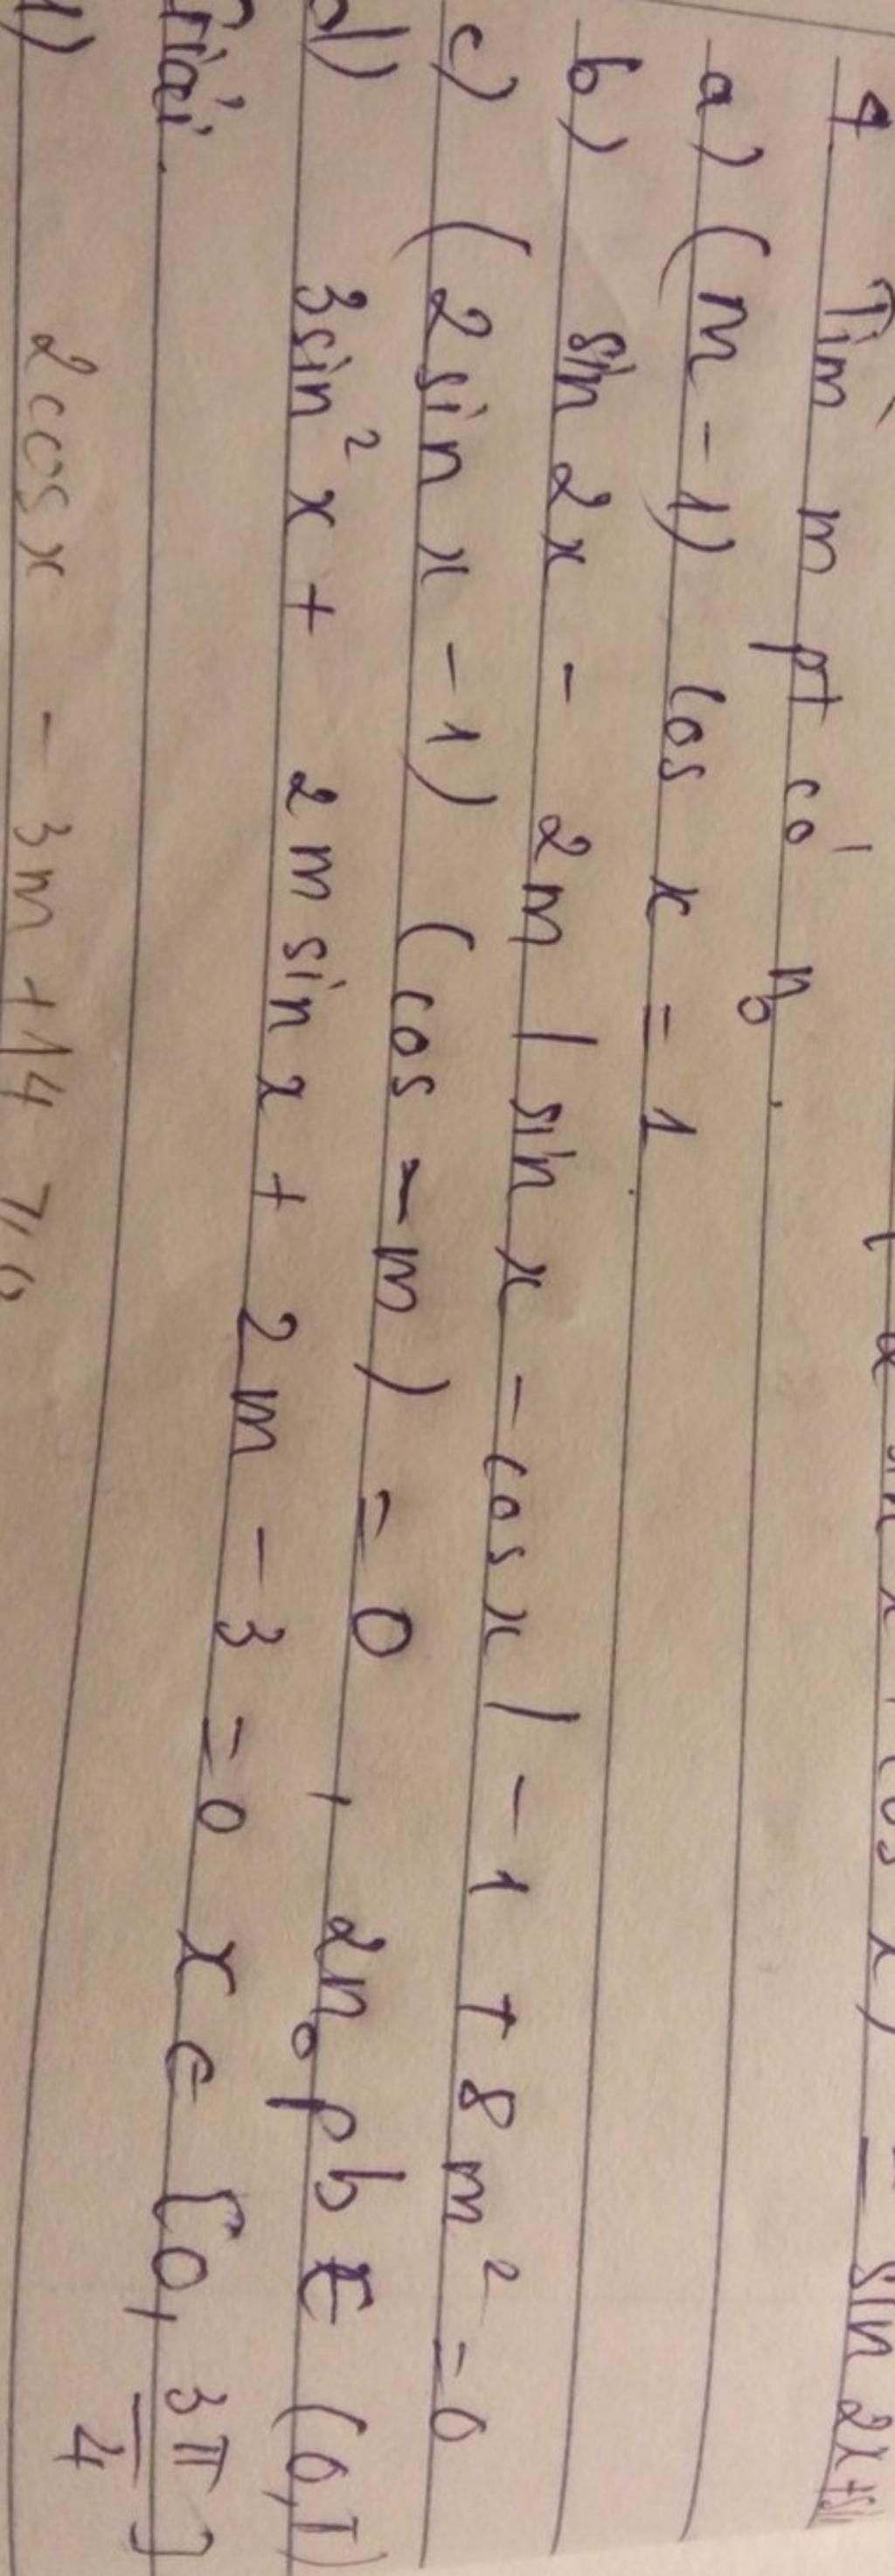 sin x + cos x) = sin 2x +
4 Tìm m pt có n₀.
a) (m - 1) cos x = 1
b) sin 2x - 2m | sin x - cos x | - 1 + 8m² = 0
c) (2 sin x - 1) (cos - m) = 0 , 2n₀ pb ∈ (0,
d) 3sin² x + 2m sin x + 2m - 3 = 0 x ∈ [0, 3π/4]
Giải.
1) 2cosx - 3m + 14